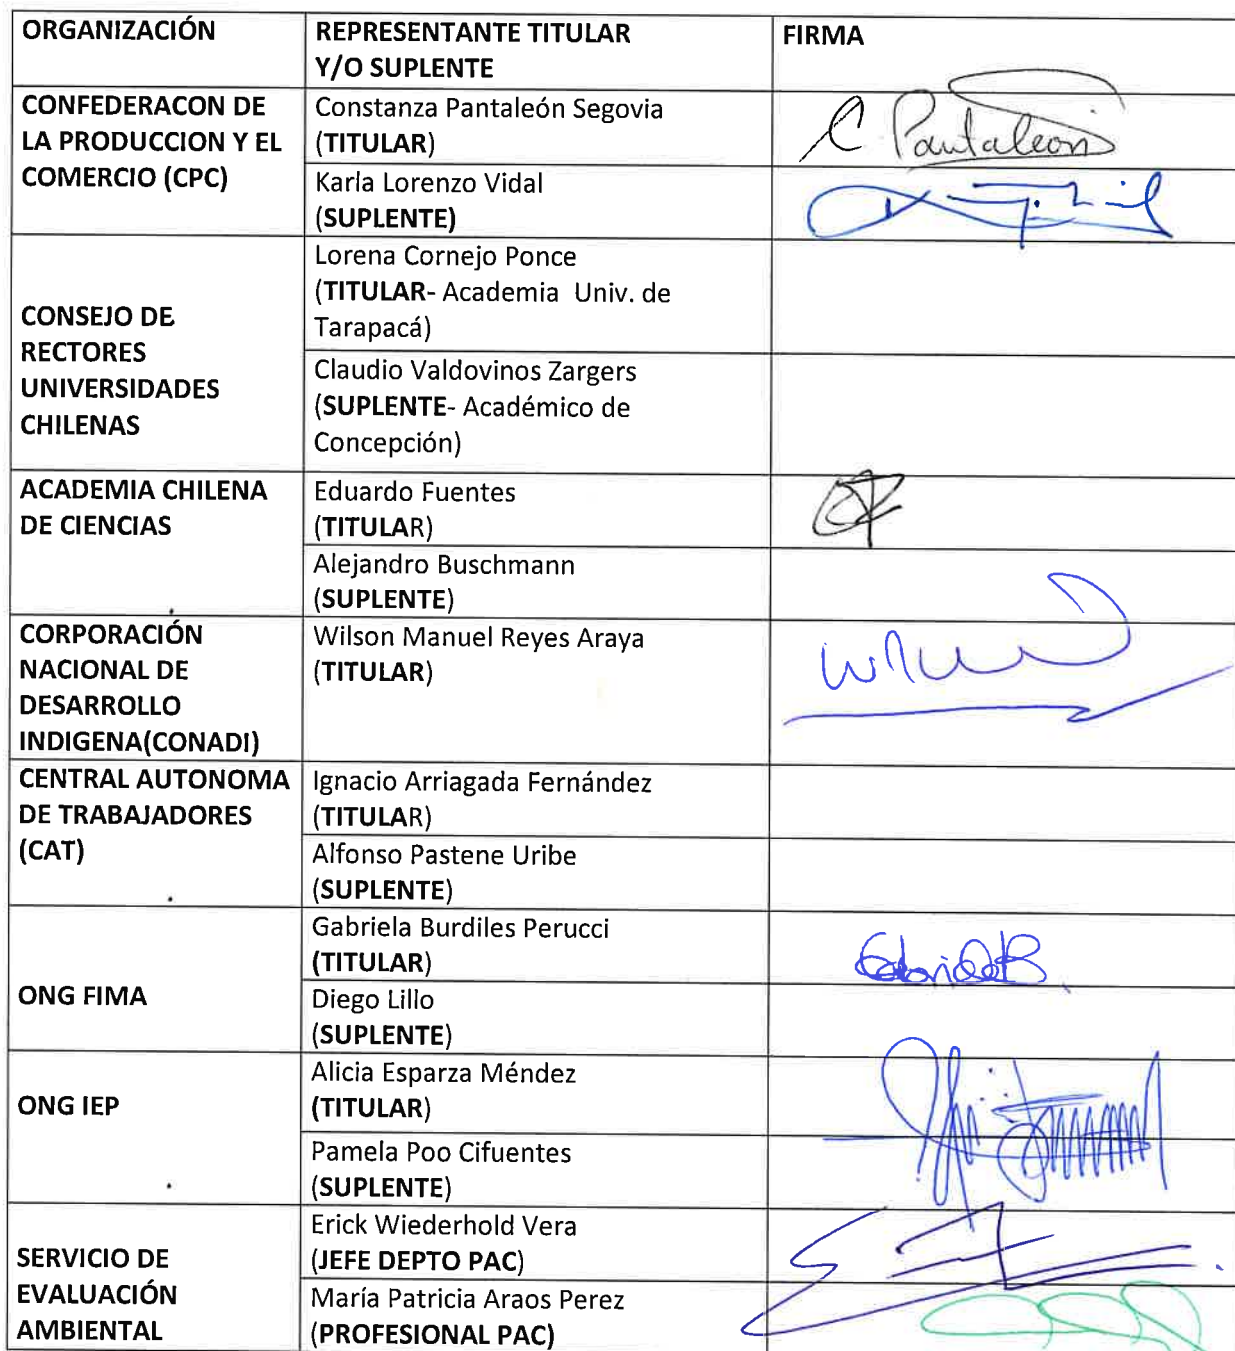 ORGANIZACIÓN
REPRESENTANTE TITULAR
Y/O SUPLENTE
FIRMA
CONFEDERACON DE
LA PRODUCCION Y EL
COMERCIO (CPC)
Constanza Pantaleón Segovia
(TITULAR)
C. Pantaleón
Karla Lorenzo Vidal
(SUPLENTE)
CONSEJO DE
RECTORES
UNIVERSIDADES
CHILENAS
Lorena Cornejo Ponce
(TITULAR- Academia Univ. de
Tarapacá)
Claudio Valdovinos Zargers
(SUPLENTE- Académico de
Concepción)
ACADEMIA CHILENA
DE CIENCIAS
Eduardo Fuentes
(TITULAR)
Alejandro Buschmann
(SUPLENTE)
CORPORACIÓN
NACIONAL DE
DESARROLLO
INDIGENA(CONADI)
Wilson Manuel Reyes Araya
(TITULAR)
CENTRAL AUTONOMA
DE TRABAJADORES
(CAT)
Ignacio Arriagada Fernández
(TITULAR)
Alfonso Pastene Uribe
(SUPLENTE)
ONG FIMA
Gabriela Burdiles Perucci
(TITULAR)
Gabriela B.
Diego Lillo
(SUPLENTE)
ONG IEP
Alicia Esparza Méndez
(TITULAR)
Pamela Poo Cifuentes
(SUPLENTE)
SERVICIO DE
EVALUACIÓN
AMBIENTAL
Erick Wiederhold Vera
(JEFE DEPTO PAC)
María Patricia Araos Perez
(PROFESIONAL PAC)